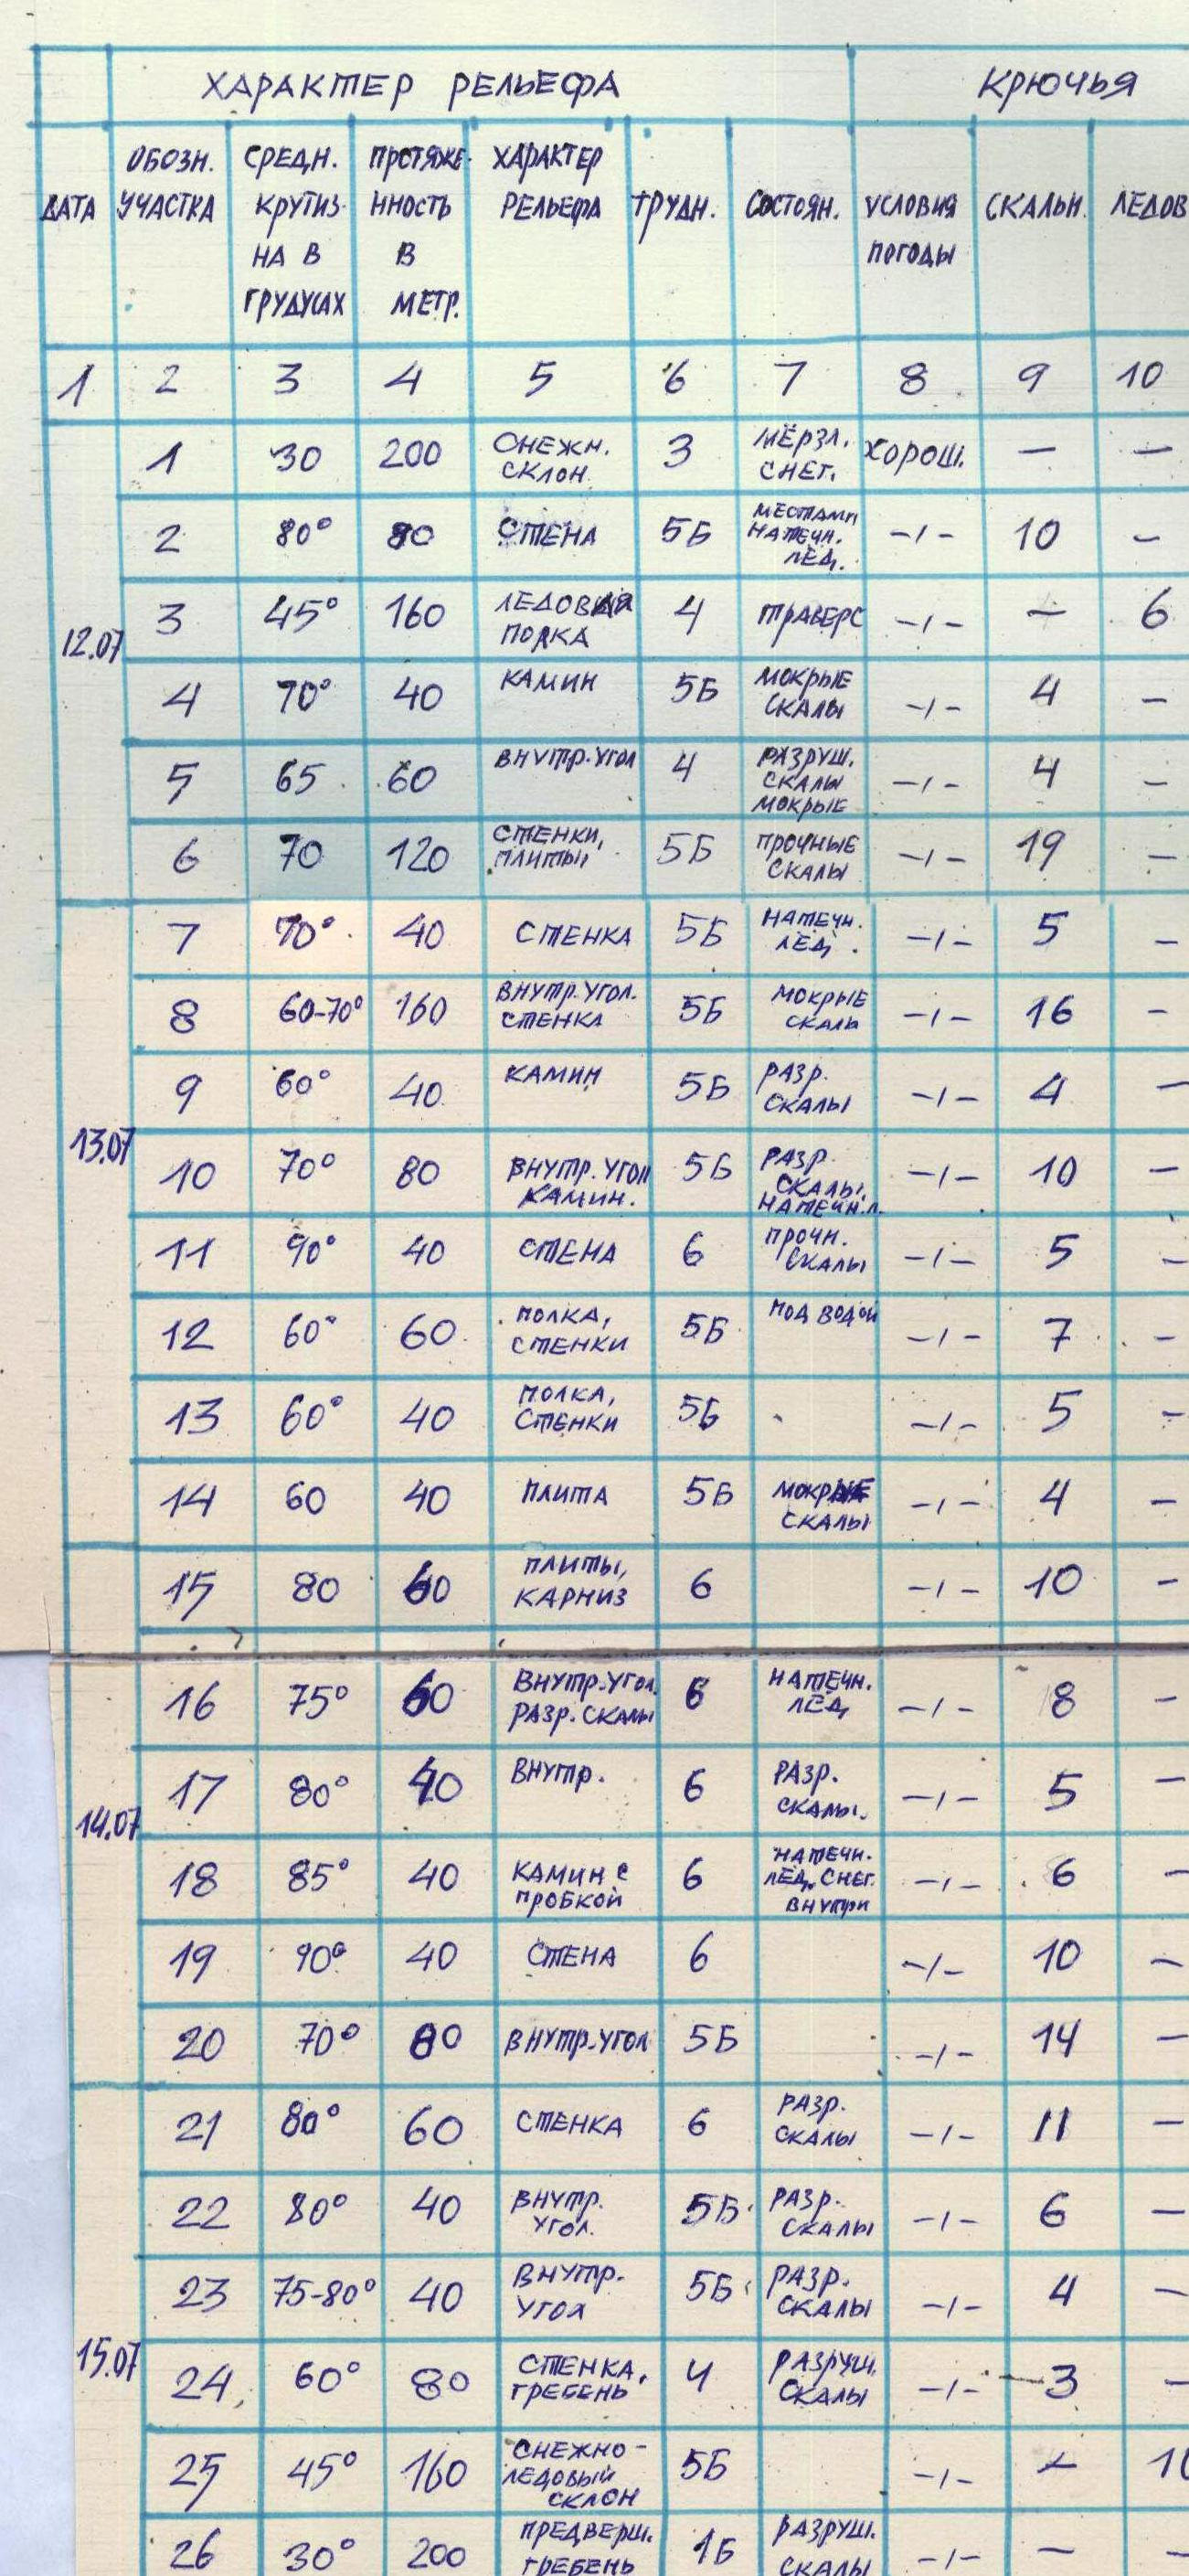 ХАРАКТЕР РЕЛЬЕФА КРЮЧЬЯ
ДАТА ОБОЗН. УЧАСТКА СРЕДН. КРУТИЗ НА В ГРУДУСАХ ПРТЯЖЕ- ННОСТЬ В МЕТР. ХАРАКТЕР РЕЛЬЕФА ТРУДН. СОСТОЯН. УСЛОВИЯ ПОГОДЫ СКАЛЬН. ЛЕДОВ
1 2 3 4 5 6 7 8 9 10
12.07
1 30 200 СНЕЖН. СКЛОН 3 МЁРЗЛ. СНЕГ. ХОРОШ. — —
2 80° 80 СТЕНА 5Б МЕСТАМИ НАТЕЧН. ЛЁД. -/- 10 —
3 45° 160 ЛЕДОВАЯ ПОЛКА 4 ТРАВЕРС -/- — 6
4 70° 40 КАМИН 5Б МОКРЫЕ СКАЛЫ -/- 4 —
5 65 60 ВНУТР. УГОЛ 4 РАЗРУШ. СКАЛЫ МОКРЫЕ -/- 4 —
6 70 120 СТЕНКИ, ПЛИТЫ 5Б ПРОЧНЫЕ СКАЛЫ -/- 19 —
13.07
7 70° 40 СТЕНКА 5Б НАТЕЧН. ЛЁД. -/- 5 —
8 60-70° 160 ВНУТР. УГОЛ. СТЕНКА 5Б МОКРЫЕ СКАЛЫ -/- 16 —
9 60° 40 КАМИН 5Б РАЗР. СКАЛЫ -/- 4 —
10 70° 80 ВНУТР. УГОЛ КАМИН. 5Б РАЗР. СКАЛЫ. НАТЕЧН.Л. -/- 10 —
11 90° 40 СТЕНА 6 ПРОЧН. СКАЛЫ -/- 5 —
12 60° 60 ПОЛКА, СТЕНКИ 5Б ПОД ВОДОЙ -/- 7 —
13 60° 40 ПОЛКА, СТЕНКИ 5Б -/- 5 —
14 60 40 ПЛИТА 5Б МОКРЫЕ СКАЛЫ -/- 4 —
15 80 60 ПЛИТЫ, КАРНИЗ 6 -/- 10 —
14.07
16 75° 60 ВНУТР. УГОЛ. РАЗР. СКАЛЫ 6 НАТЕЧН. ЛЁД -/- 8 —
17 80° 40 ВНУТР. 6 РАЗР. СКАЛЫ. -/- 5 —
18 85° 40 КАМИН С ПРОБКОЙ 6 НАТЕЧН. ЛЁД, СНЕГ. ВНУТРИ -/- 6 —
19 90° 40 СТЕНА 6 -/- 10 —
20 70° 80 ВНУТР. УГОЛ 5Б -/- 14 —
15.07
21 80° 60 СТЕНКА 6 РАЗР. СКАЛЫ -/- 11 —
22 80° 40 ВНУТР. УГОЛ. 5Б РАЗР. СКАЛЫ -/- 6 —
23 75-80° 40 ВНУТР. УГОЛ 5Б РАЗР. СКАЛЫ -/- 4 —
24 60° 80 СТЕНКА, ГРЕБЕНЬ 4 РАЗРУШ. СКАЛЫ -/- 3 —
25 45° 160 СНЕЖНО- ЛЕДОВЫЙ СКЛОН 5Б -/- —
26 30° 200 ПРЕДВЕРШ. ГРЕБЕНЬ 1Б РАЗРУШ. СКАЛЫ -/- — —